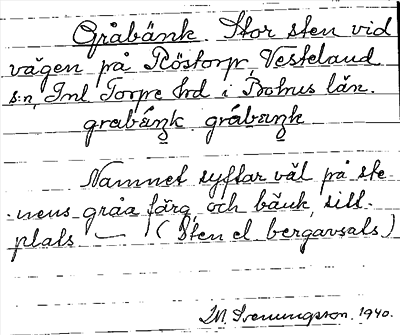 Gråbänk. Stor sten vid
vägen på Röstorp, Vesteland
s:n, Inl Torpe hd i Bohus län.
grabáṉk grábaṉk
Namnet syftar väl på ste-
nens gråa färg och bänk, sitt-
plats — (Sten el. bergavsats)
M. Svenungsson. 1940.